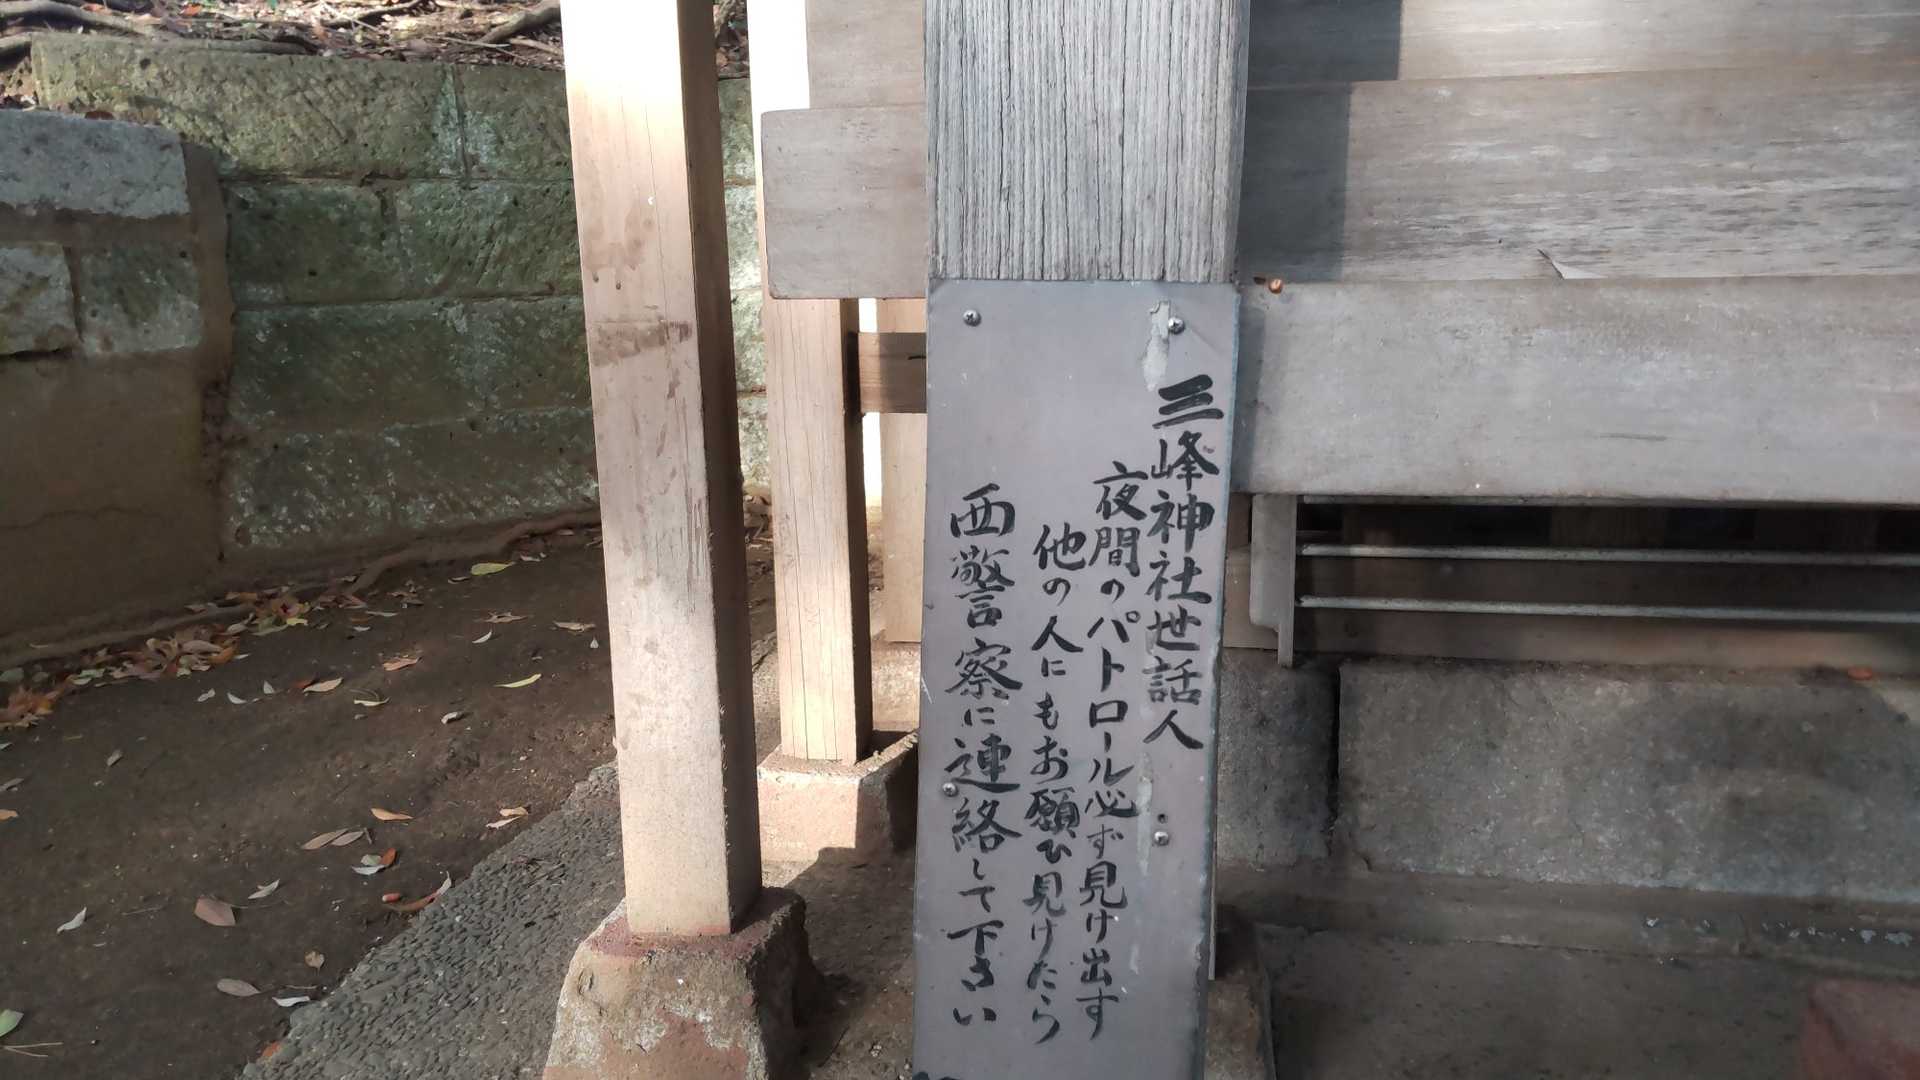 三峰神社世話人
夜間のパトロール必ず見け出す
他の人にもお願ひ見けたら
西警察に連絡して下さい